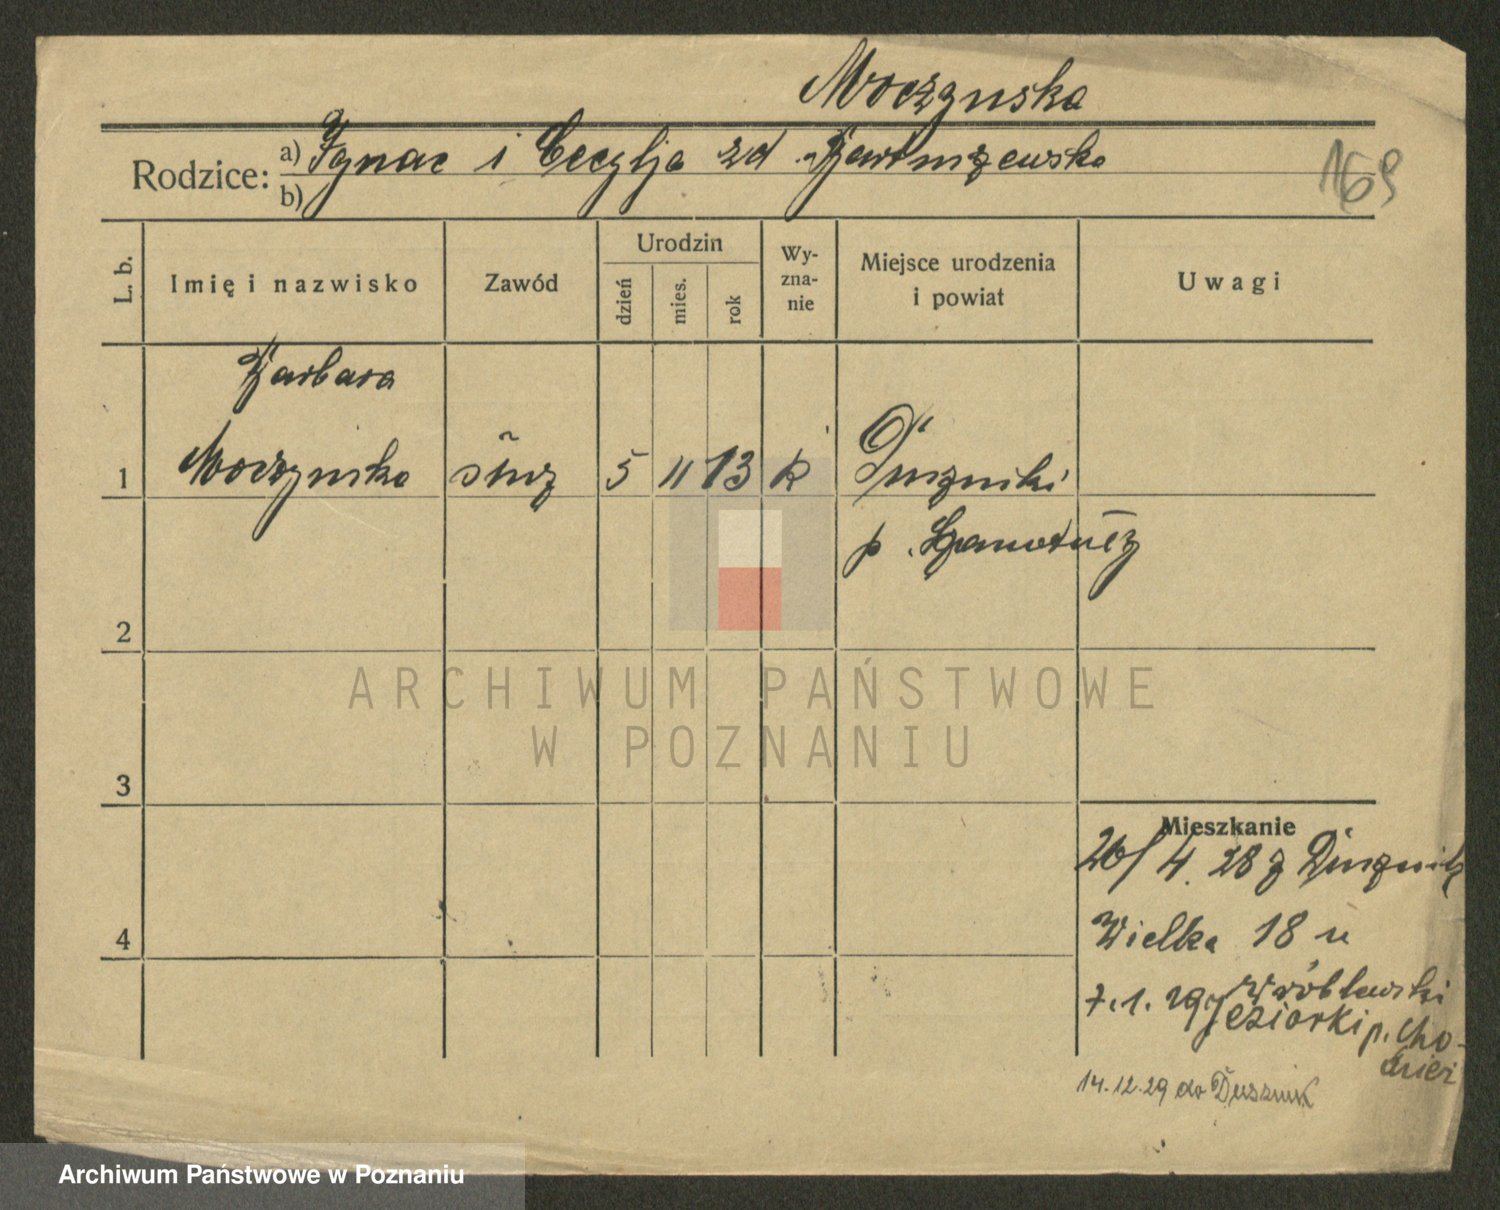 Moczynska
Rodzice: a) Ignac i Cecylja zd
b)
169
L. b.
Imię i nazwisko
Zawód
Urodzin
dzień
mies.
rok
Wy-
zna-
nie
Miejsce urodzenia
i powiat
Uwagi
Barbara
1 Moczynska służ 5 11 13 k Duszniki
p. Szamotuły
2
3
4
Mieszkanie
26/4. 28 z Dusznik
Wielka 18 u
Wróblewski
7.1.29 Jeziorki p. Cho-
dzież
14.12.29 do Dusznik
ARCHIWUM PAŃSTWOWE
W POZNANIU
Archiwum Państwowe w Poznaniu